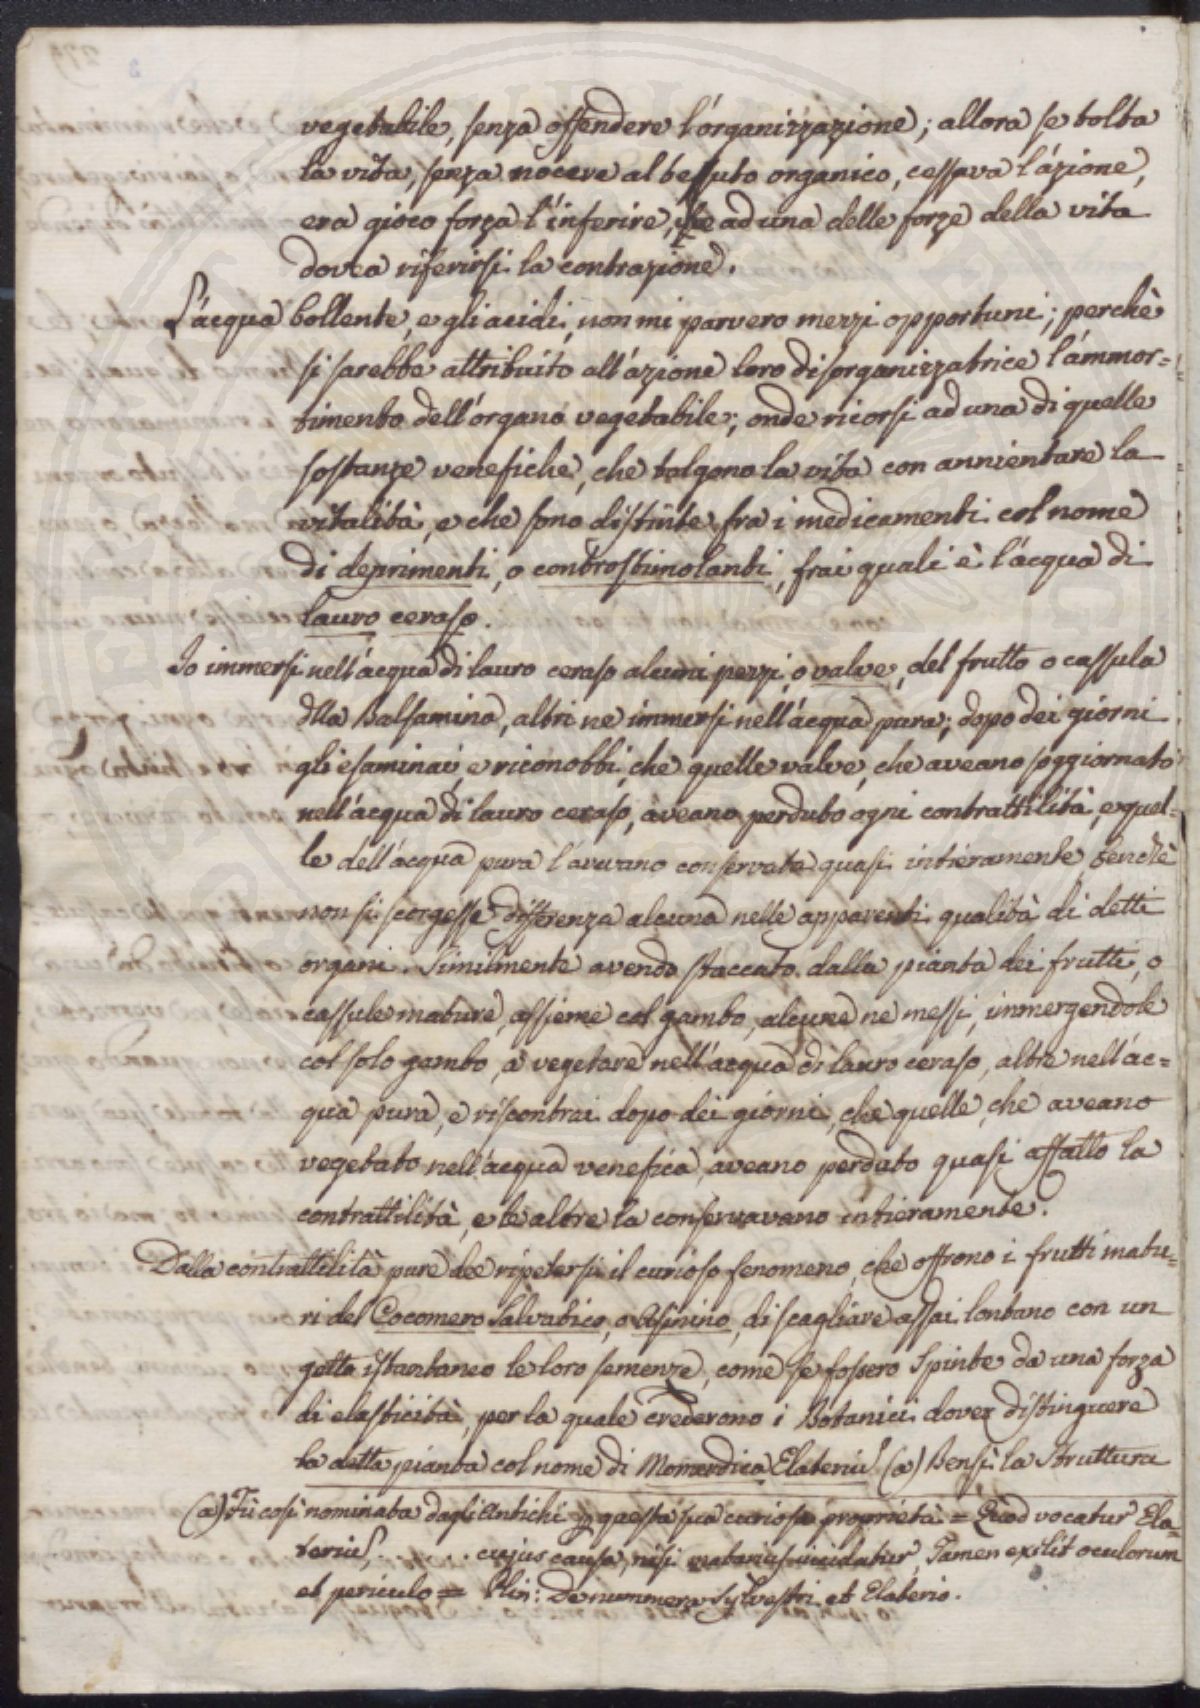 vegetabile, senza offendere l'organizzazione; allora se tolta
la vita, senza nocere al tessuto organico, cessava l'azione,
era gioco forza l'inferire, che ad una delle forze della vita
dovea riferirsi la contrazione.
L'acqua bollente, e gli acidi, non mi parvero mezzi opportuni; perchè
si sarebbe attribuito all'azione loro disorganizzatrice l'ammor=
timento dell'organo vegetabile; onde ricorsi ad una di quelle
sostanze venefiche, che tolgono la vita con annientare la
vitalità, e che sono distinte fra i medicamenti col nome
di deprimenti, o controstimolanti, frai quali è l'acqua di
lauro ceraso.
Io immersi nell'acqua di lauro ceraso alcuni pezzi, o valve, del frutto o cassula
dlla Balsamina, altri ne immersi nell'acqua pura; dopo dei giorni
gli esaminai, e riconobbi, che quelle valve, che aveano soggiornato
nell'acqua di lauro ceraso, aveano perduto ogni contrattilità, e quel=
le dell'acqua pura l'avevano conservata quasi intieramente, benchè
non si scorgesse differenza alcuna nelle apparenti qualità di detti
organi. Similmente avendo staccato dalla pianta dei frutti, o
cassule mature, assieme col gambo, alcune ne messi, immergendole
col solo gambo, a vegetare nell'acqua di lauro ceraso, altre nell'ac=
qua pura, e riscontrai dopo dei giorni, che quelle, che aveano
vegetato nell'acqua venefica, aveano perduto quasi affatto la
contrattilità, e le altre la conservavano intieramente.
Dalla contrattilità pure dee ripetersi il curioso fenomeno, che offrono i frutti matu=
ri del Cocomero Salvatico, o Asinino, di scagliare assai lontano con un
getto istantaneo le loro semenze, come se fossero spinte da una forza
di elasticità, per la quale crederono i Botanici dover distinguere
la detta pianta col nome di Momordica Elaterium (a) Bensì la Struttura
(a) Fù così nominata dagli Antichi p questa sua curiosa proprietà = Quod vocatur Ela=
terium, . . . cujus causa, nisi maturius incidatur, Semen exilit oculorum
et periculo = Plin: De Sylvestri et Elaterio.